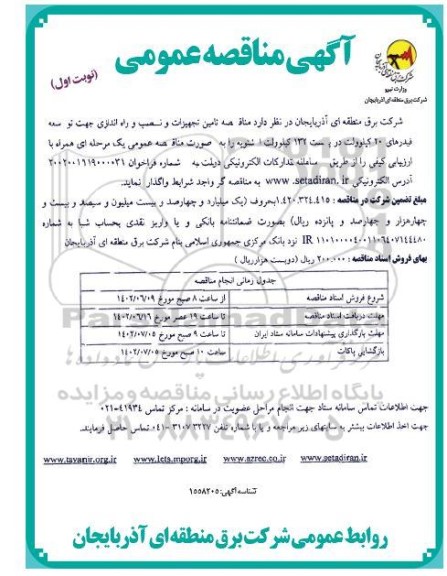 آگهی مناقصه عمومی
(نوبت اول)
وزارت نیرو
شرکت برق منطقه ای آذربایجان
شرکت برق منطقه ای آذربایجان در نظر دارد مناقصه تامین تجهیزات و نصب و راه اندازی جهت توسعه
فیدرهای ۲۰ کیلوولت در پست ۱۳۲ کیلوولت اشنویه را به صورت مناقصه عمومی یک مرحله ای همراه با
ارزیابی کیفی را از طریق سامانه تدارکات الکترونیکی دولت به شماره فراخوان ۲۰۰۲۰۰۱۱۱۹۰۰۰۰۳۱
آدرس الکترونیکی www.setadiran.ir به مناقصه گر واجد شرایط واگذار نماید.
مبلغ تضمین شرکت در مناقصه : ۱.۴۲۰.۳۲۴.۴۱۵بحروف (یک میلیارد و چهارصد و بیست میلیون و سیصد و بیست و
چهارهزار و چهارصد و پانزده ریال) بصورت ضمانتنامه بانکی و یا واریز نقدی بحساب شبا به شماره
نزد بانک مرکزی جمهوری اسلامی بنام شرکت برق منطقه ای آذربایجان
بهای فروش اسناد مناقصه : ۲۰۰.۰۰۰ ریال (دویست هزارریال)
جدول زمانی انجام مناقصه
شروع فروش اسناد مناقصه از ساعت ۸ صبح مورخ ۱۴۰۲/۰۶/۰۹
مهلت دریافت اسناد مناقصه تا ساعت ۱۹ عصر مورخ ۱۴۰۲/۰۶/۱۶
مهلت بارگذاری پیشنهادات سامانه ستاد ایران تا ساعت ۹ صبح مورخ ۱۴۰۲/۰۷/۰۵
بازگشایی پاکات ساعت ۱۰ صبح مورخ ۱۴۰۲/۰۷/۰۵
پایگاه اطلاع رسانی مناقصه و مزایده
جهت اطلاعات تماس سامانه ستاد جهت انجام مراحل عضویت در سامانه : مرکز تماس ۴۱۹۳۴-۰۲۱
جهت اخذ اطلاعات بیشتر به سایتهای زیر مراجعه و یا با شماره تلفن ۳۱۰۷۳۲۲۷-۰۴۱ تماس حاصل فرمایند.
www.tavanir.org.ir www.iets.mporg.ir www.azrec.co.ir www.setadiran.ir
شناسه آگهی: ۱۵۵۸۲۰۵
روابط عمومی شرکت برق منطقه ای آذربایجان